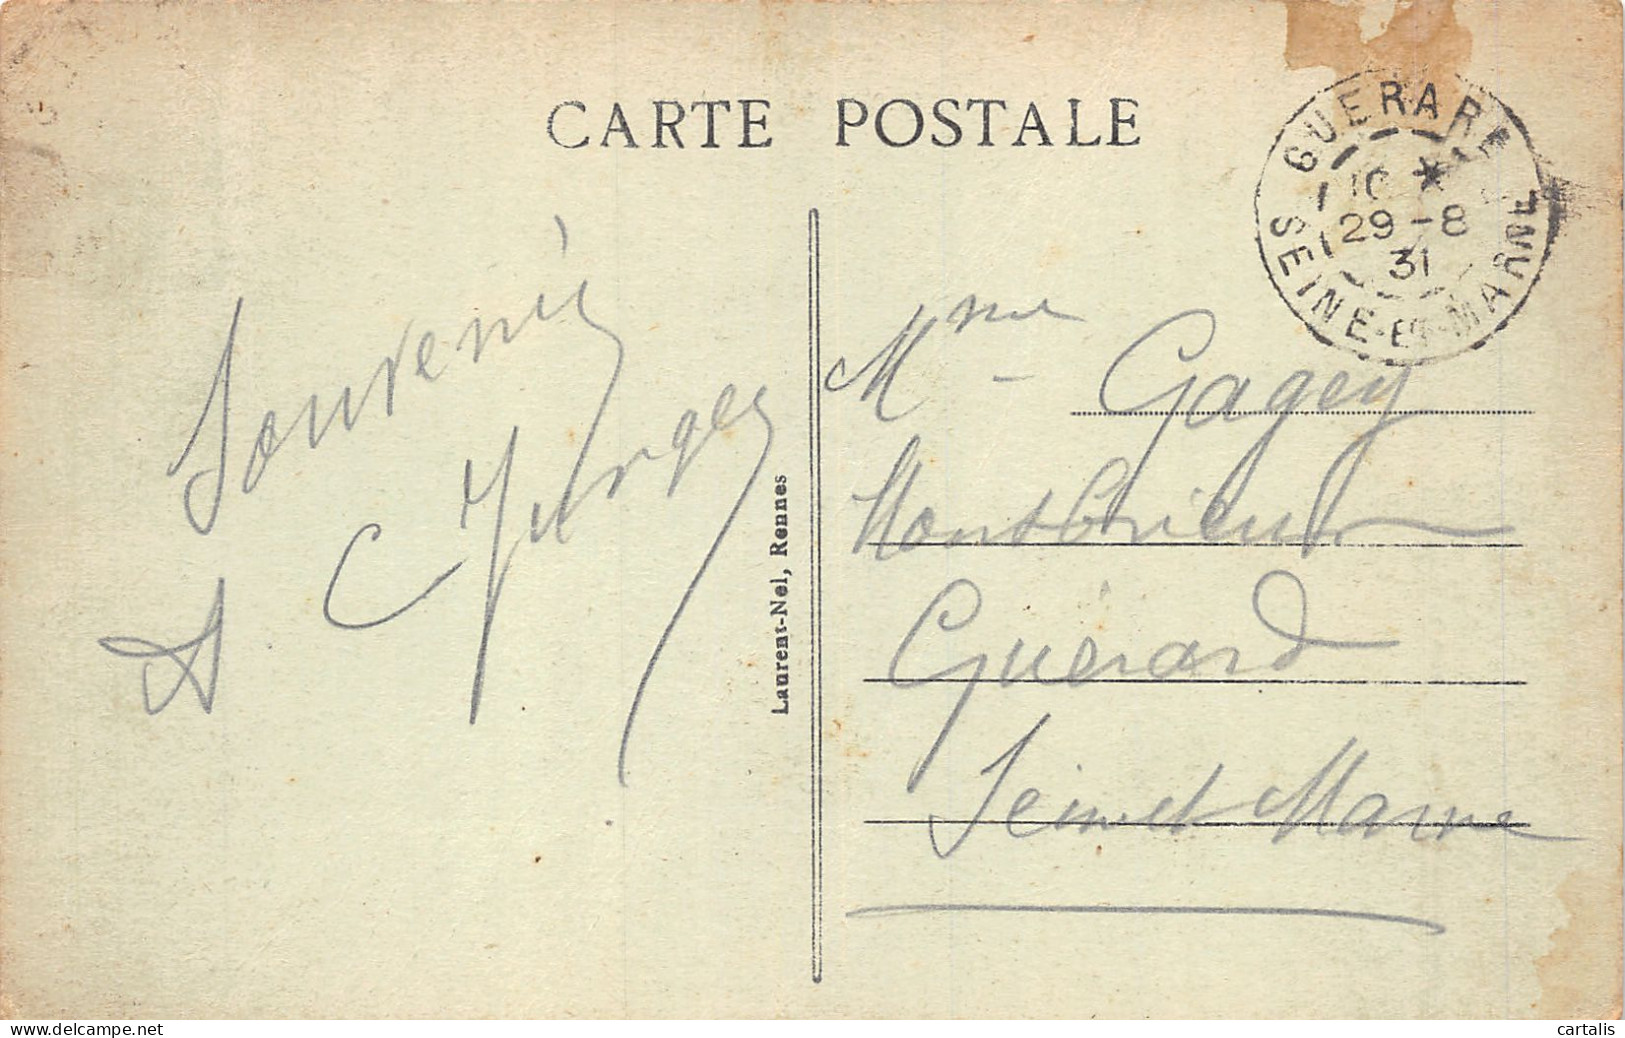 CARTE POSTALE
GUERARD
10 *
29-8
31
SEINE-ET-MARNE
Souvenir
Laurent-Nel, Rennes
Mme Gagey
Montbrieux
Guérard
Seine et Marne
cartalis